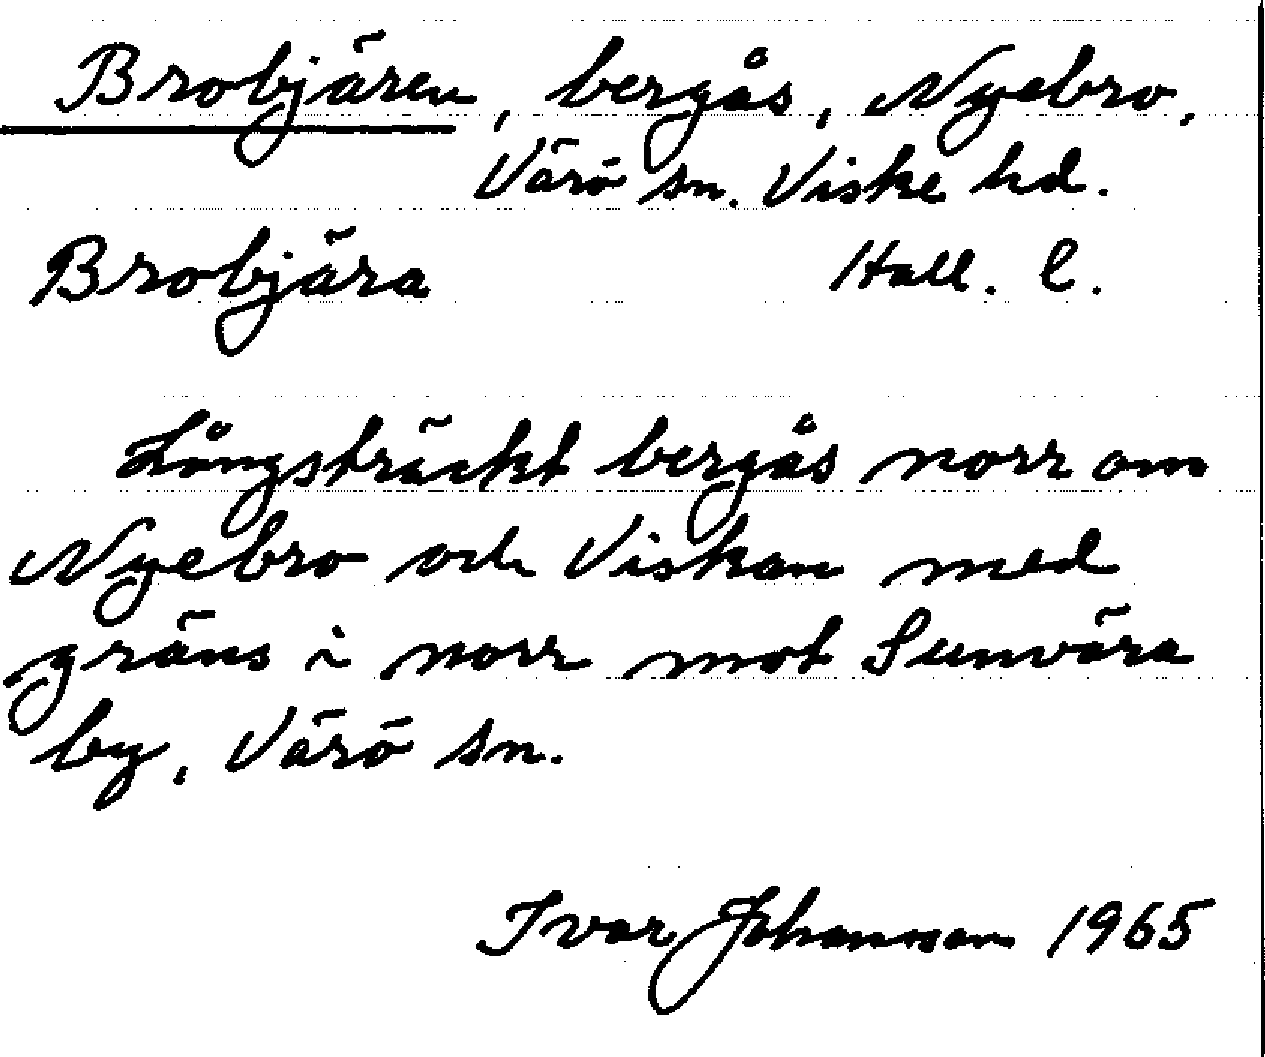 Brobjären, bergås, Nyebro,
Värö sn. Viske hd.
Brobjära Hall. l.
Långsträckt bergås norr om
Nyebro och Viskan med
gräns i norr mot Sunvära
by, Värö sn.
Ivar Johansson 1965